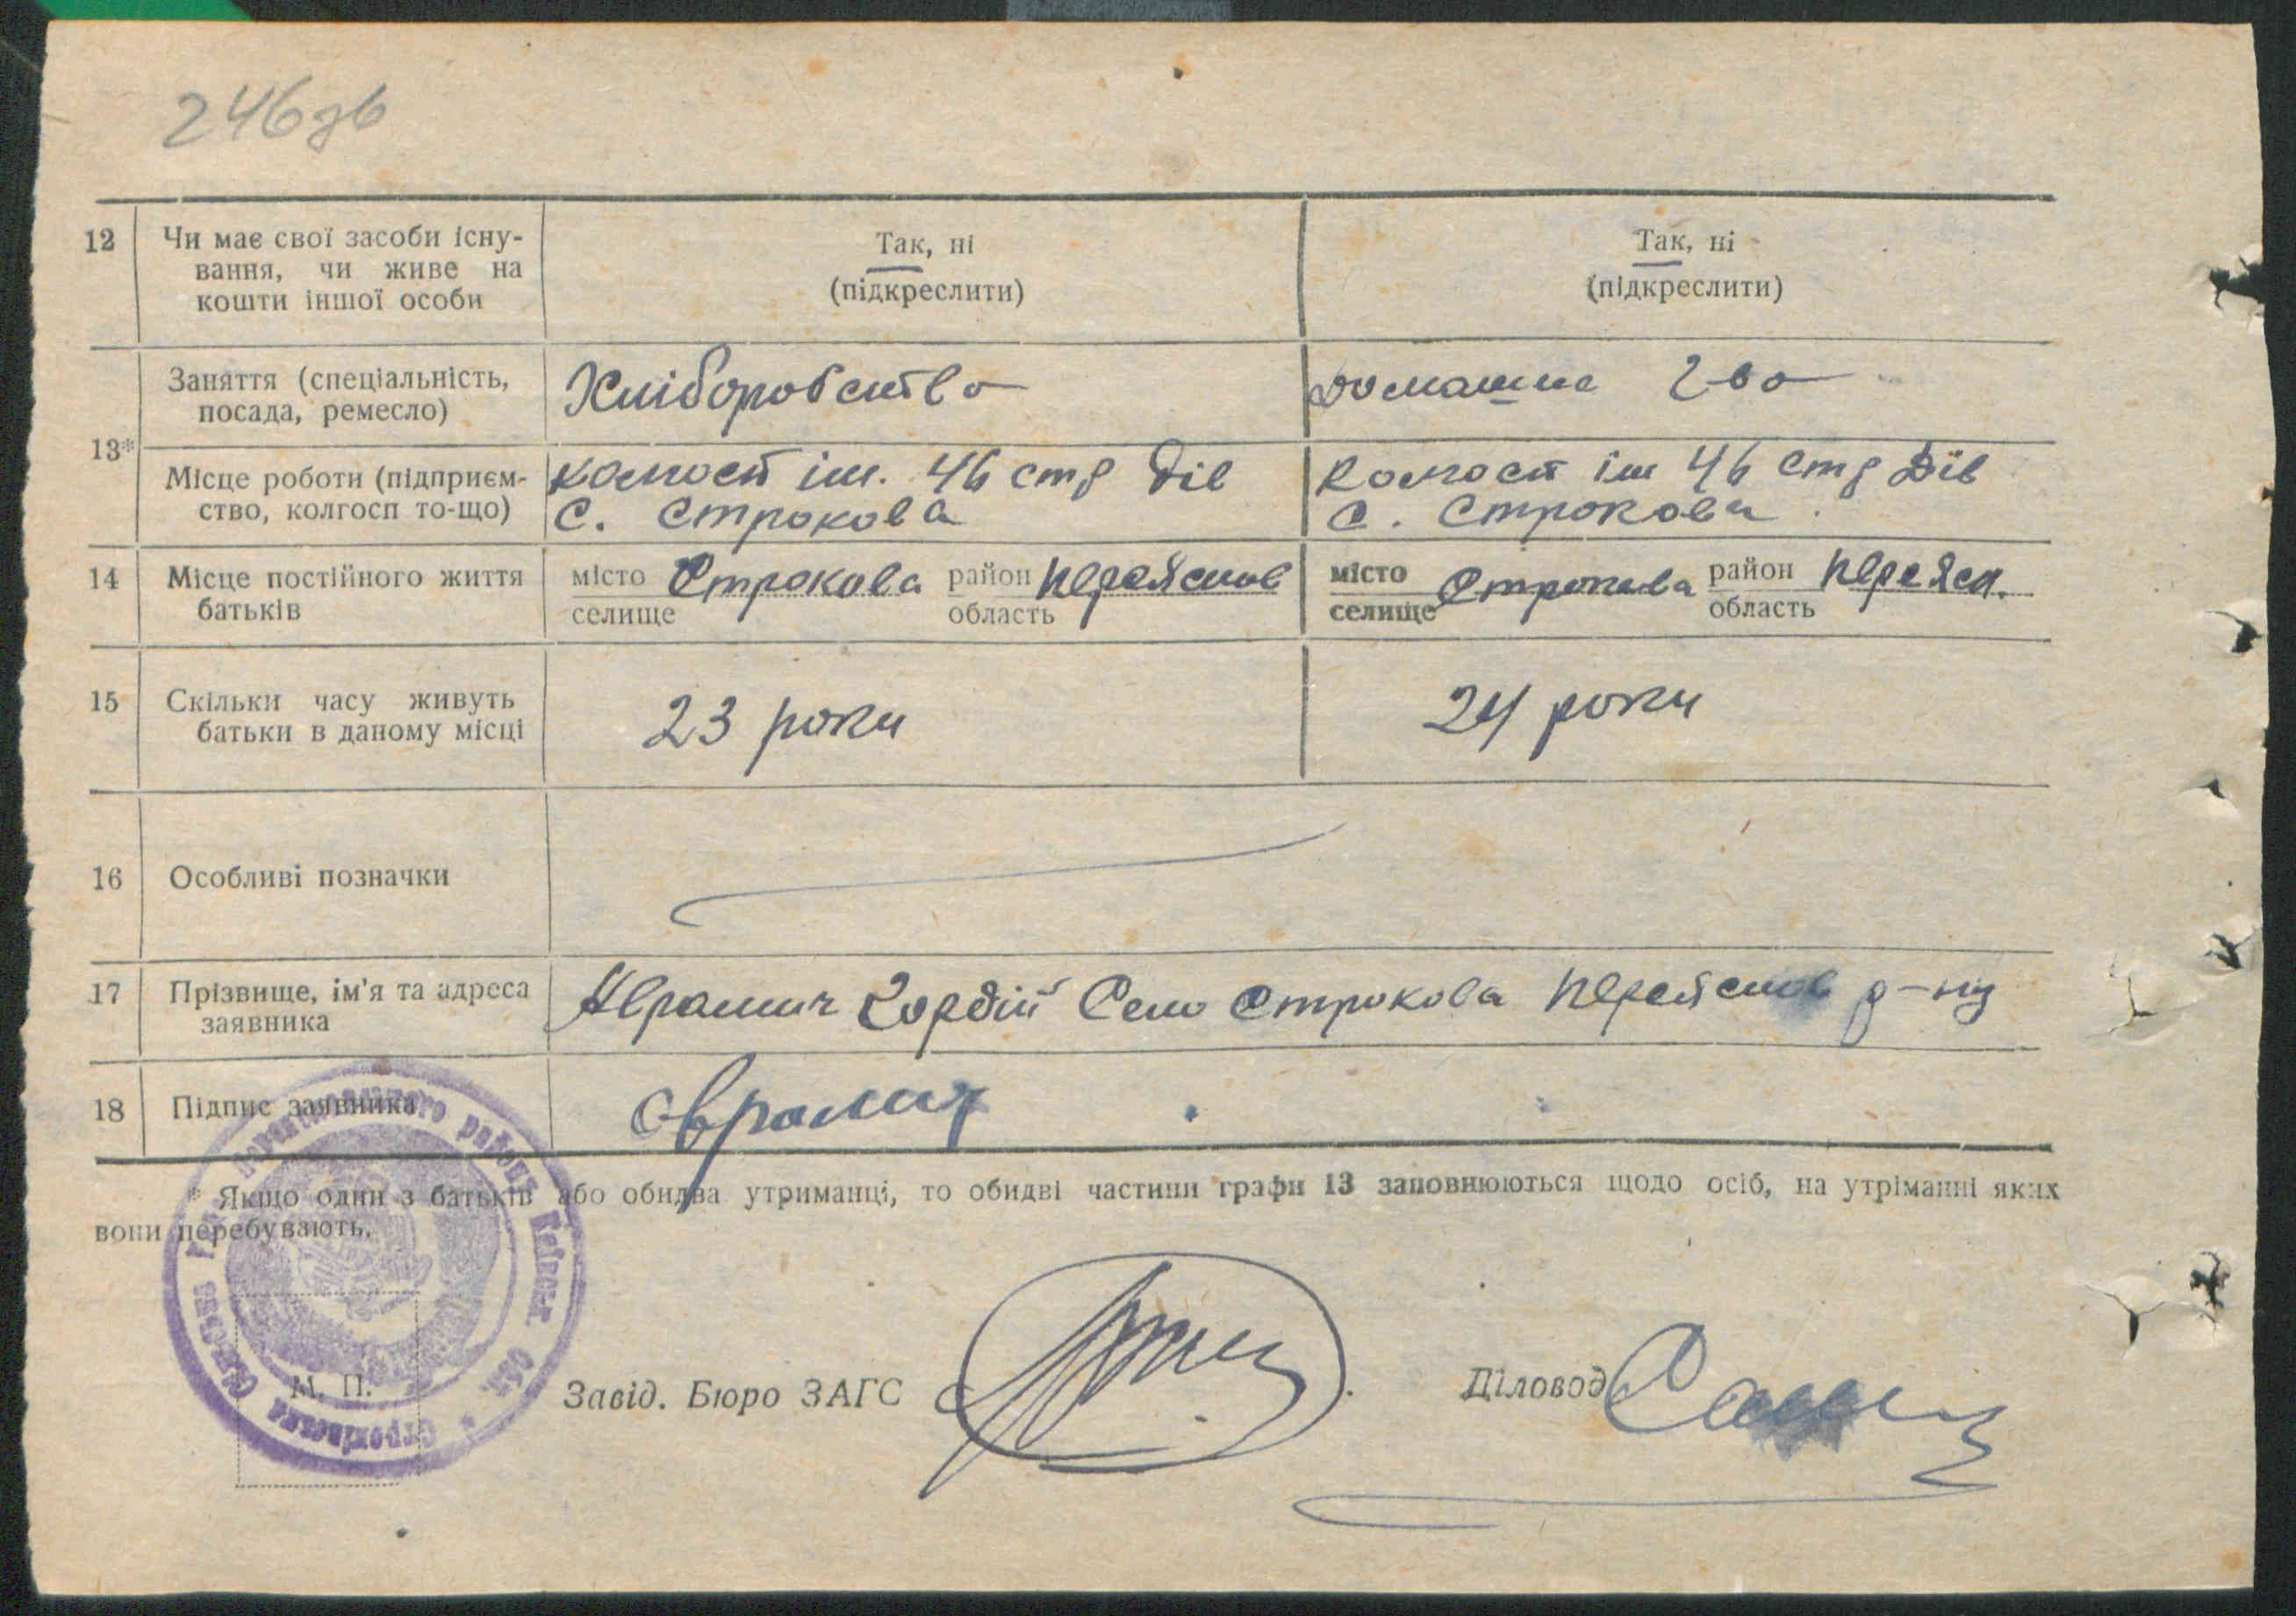 246зв
12 Чи має свої засоби існу-
вання, чи живе на
кошти іншої особи
Так, ні
(підкреслити)
Так, ні
(підкреслити)
13*
Заняття (спеціальність,
посада, ремесло)
Хліборобство
домашне г-во
Місце роботи (підприєм-
ство, колгосп то-що)
колгосп ім. 46 стр Див
С. Строкова
колгосп ім 46 стр Див
С. Строкова
14 Місце постійного життя
батьків
місто Строкова район Переяслов
селище область
місто Строкова район Переясл.
селище область
15 Скільки часу живуть
батьки в даному місці
23 роки
24 роки
16 Особливі позначки
17 Прізвище, ім'я та адреса
заявника
Аврамич Гордій Село Строкова Переяслов р-ну
18 Підпис заявника
Аврамич
* Якщо один з батьків або обидва утриманці, то обидві частини графи 13 заповнюються щодо осіб, на утріманні яких
вони перебувають.
М. П.
Завід. Бюро ЗАГС
Діловод